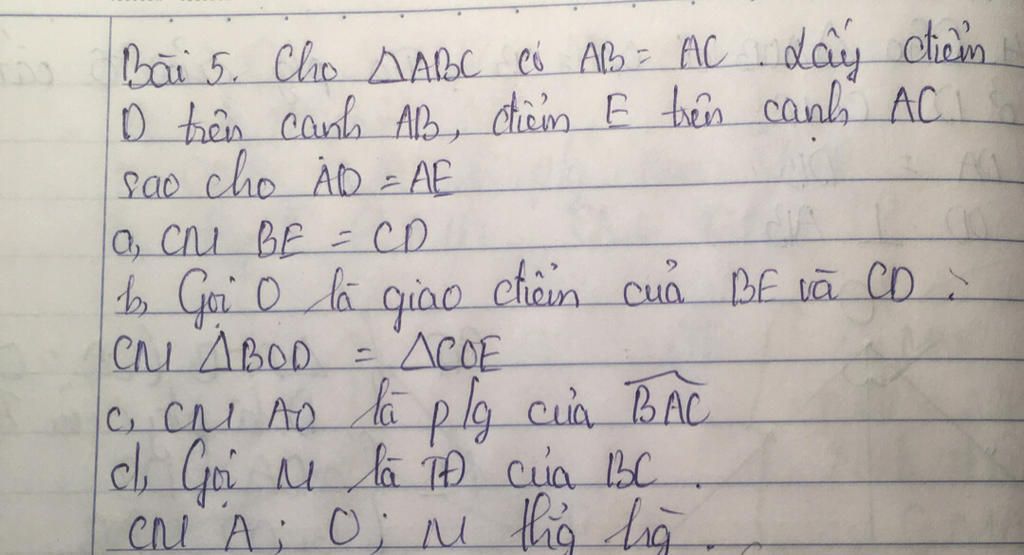 Bài 5. Cho △ABC có AB = AC. Lấy điểm
D trên cạnh AB, điểm E trên cạnh AC
sao cho AD = AE
a, CM BE = CD
b, Gọi O là giao điểm của BE và CD.
CM △BOD = △COE
c, CM AO là p/g của \widehat{BAC}
d, Gọi M là TĐ của BC.
CM A; O; M thg hg.